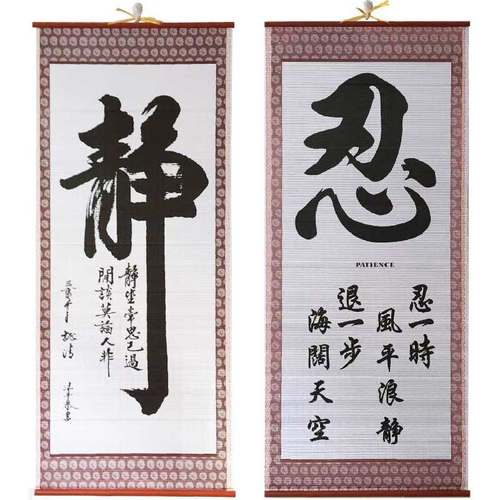 静
静坐常思己過
閒談莫論人非
忍
PATIENCE
忍一時
風平浪靜
退一步
海闊天空